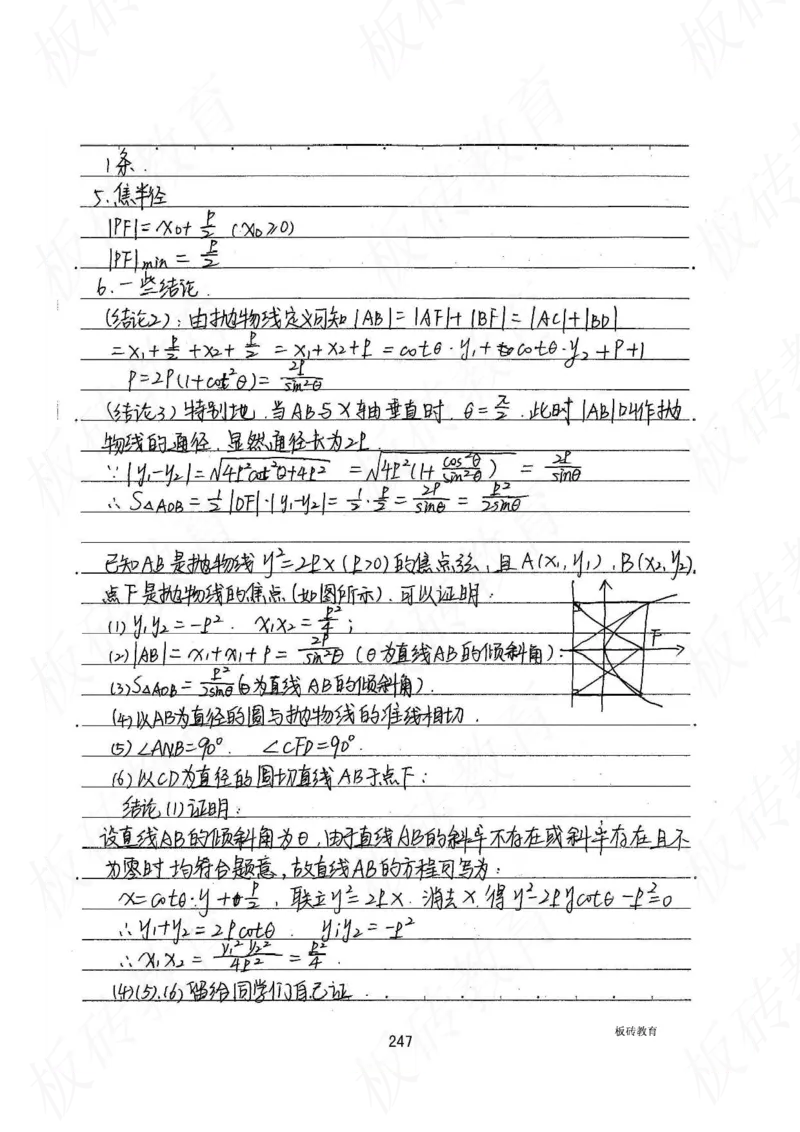 1条.
5.焦半径
|PF|=x₀+p/2 (x₀≥0)
|PF|min = p/2
6.一些结论.
(结论2):由抛物线定义可知|AB|=|AF|+|BF|=|AC|+|BD|
=x₁+p/2+x₂+p/2=x₁+x₂+p=cotθ·y₁+cotθ·y₂+p+1
p=2p(1+cot²θ)=2p/sin²θ
(结论3)特别地,当AB与X轴垂直时,θ=π/2.此时|AB|叫作抛
物线的通径,显然通径长为2p.
∵|y₁-y₂|=√(4p²cot²θ+4p²) =√(4p²(1+cos²θ/sin²θ)) = 2p/sinθ
∴S△AOB=1/2|OF|·|y₁-y₂|=1/2·p/2=2p/sinθ=p²/2sinθ
已知AB是抛物线y²=2px(p>0)的焦点弦,且A(x₁,y₁),B(x₂,y₂).
点F是抛物线的焦点(如图所示).可以证明:
(1)y₁y₂=-p². x₁x₂=p²/4;
(2)|AB|=x₁+x₁+p=2p/sin²θ(θ为直线AB的倾斜角):
F
(3)S△AOB=p²/2sinθ(θ为直线AB的倾斜角).
(4)以AB为直径的圆与抛物线的准线相切.
(5)∠ANB=90°. ∠CFD=90°.
(6)以CD为直径的圆切直线AB于点F:
结论(1)证明:
设直线AB的倾斜角为θ,由于直线AB的斜率不存在或斜率存在且不
为零时均符合题意,故直线AB的方程可写为:
x=cotθ·y+p/2,联立y²=2px.消去x,得y²-2pycotθ-p²=0
∴y₁+y₂=2pcotθ. y₁y₂=-p²
∴x₁x₂=y₁²y₂²/4p²=p²/4.
(4)(5).(6)留给同学们自己证.
板砖教育
247